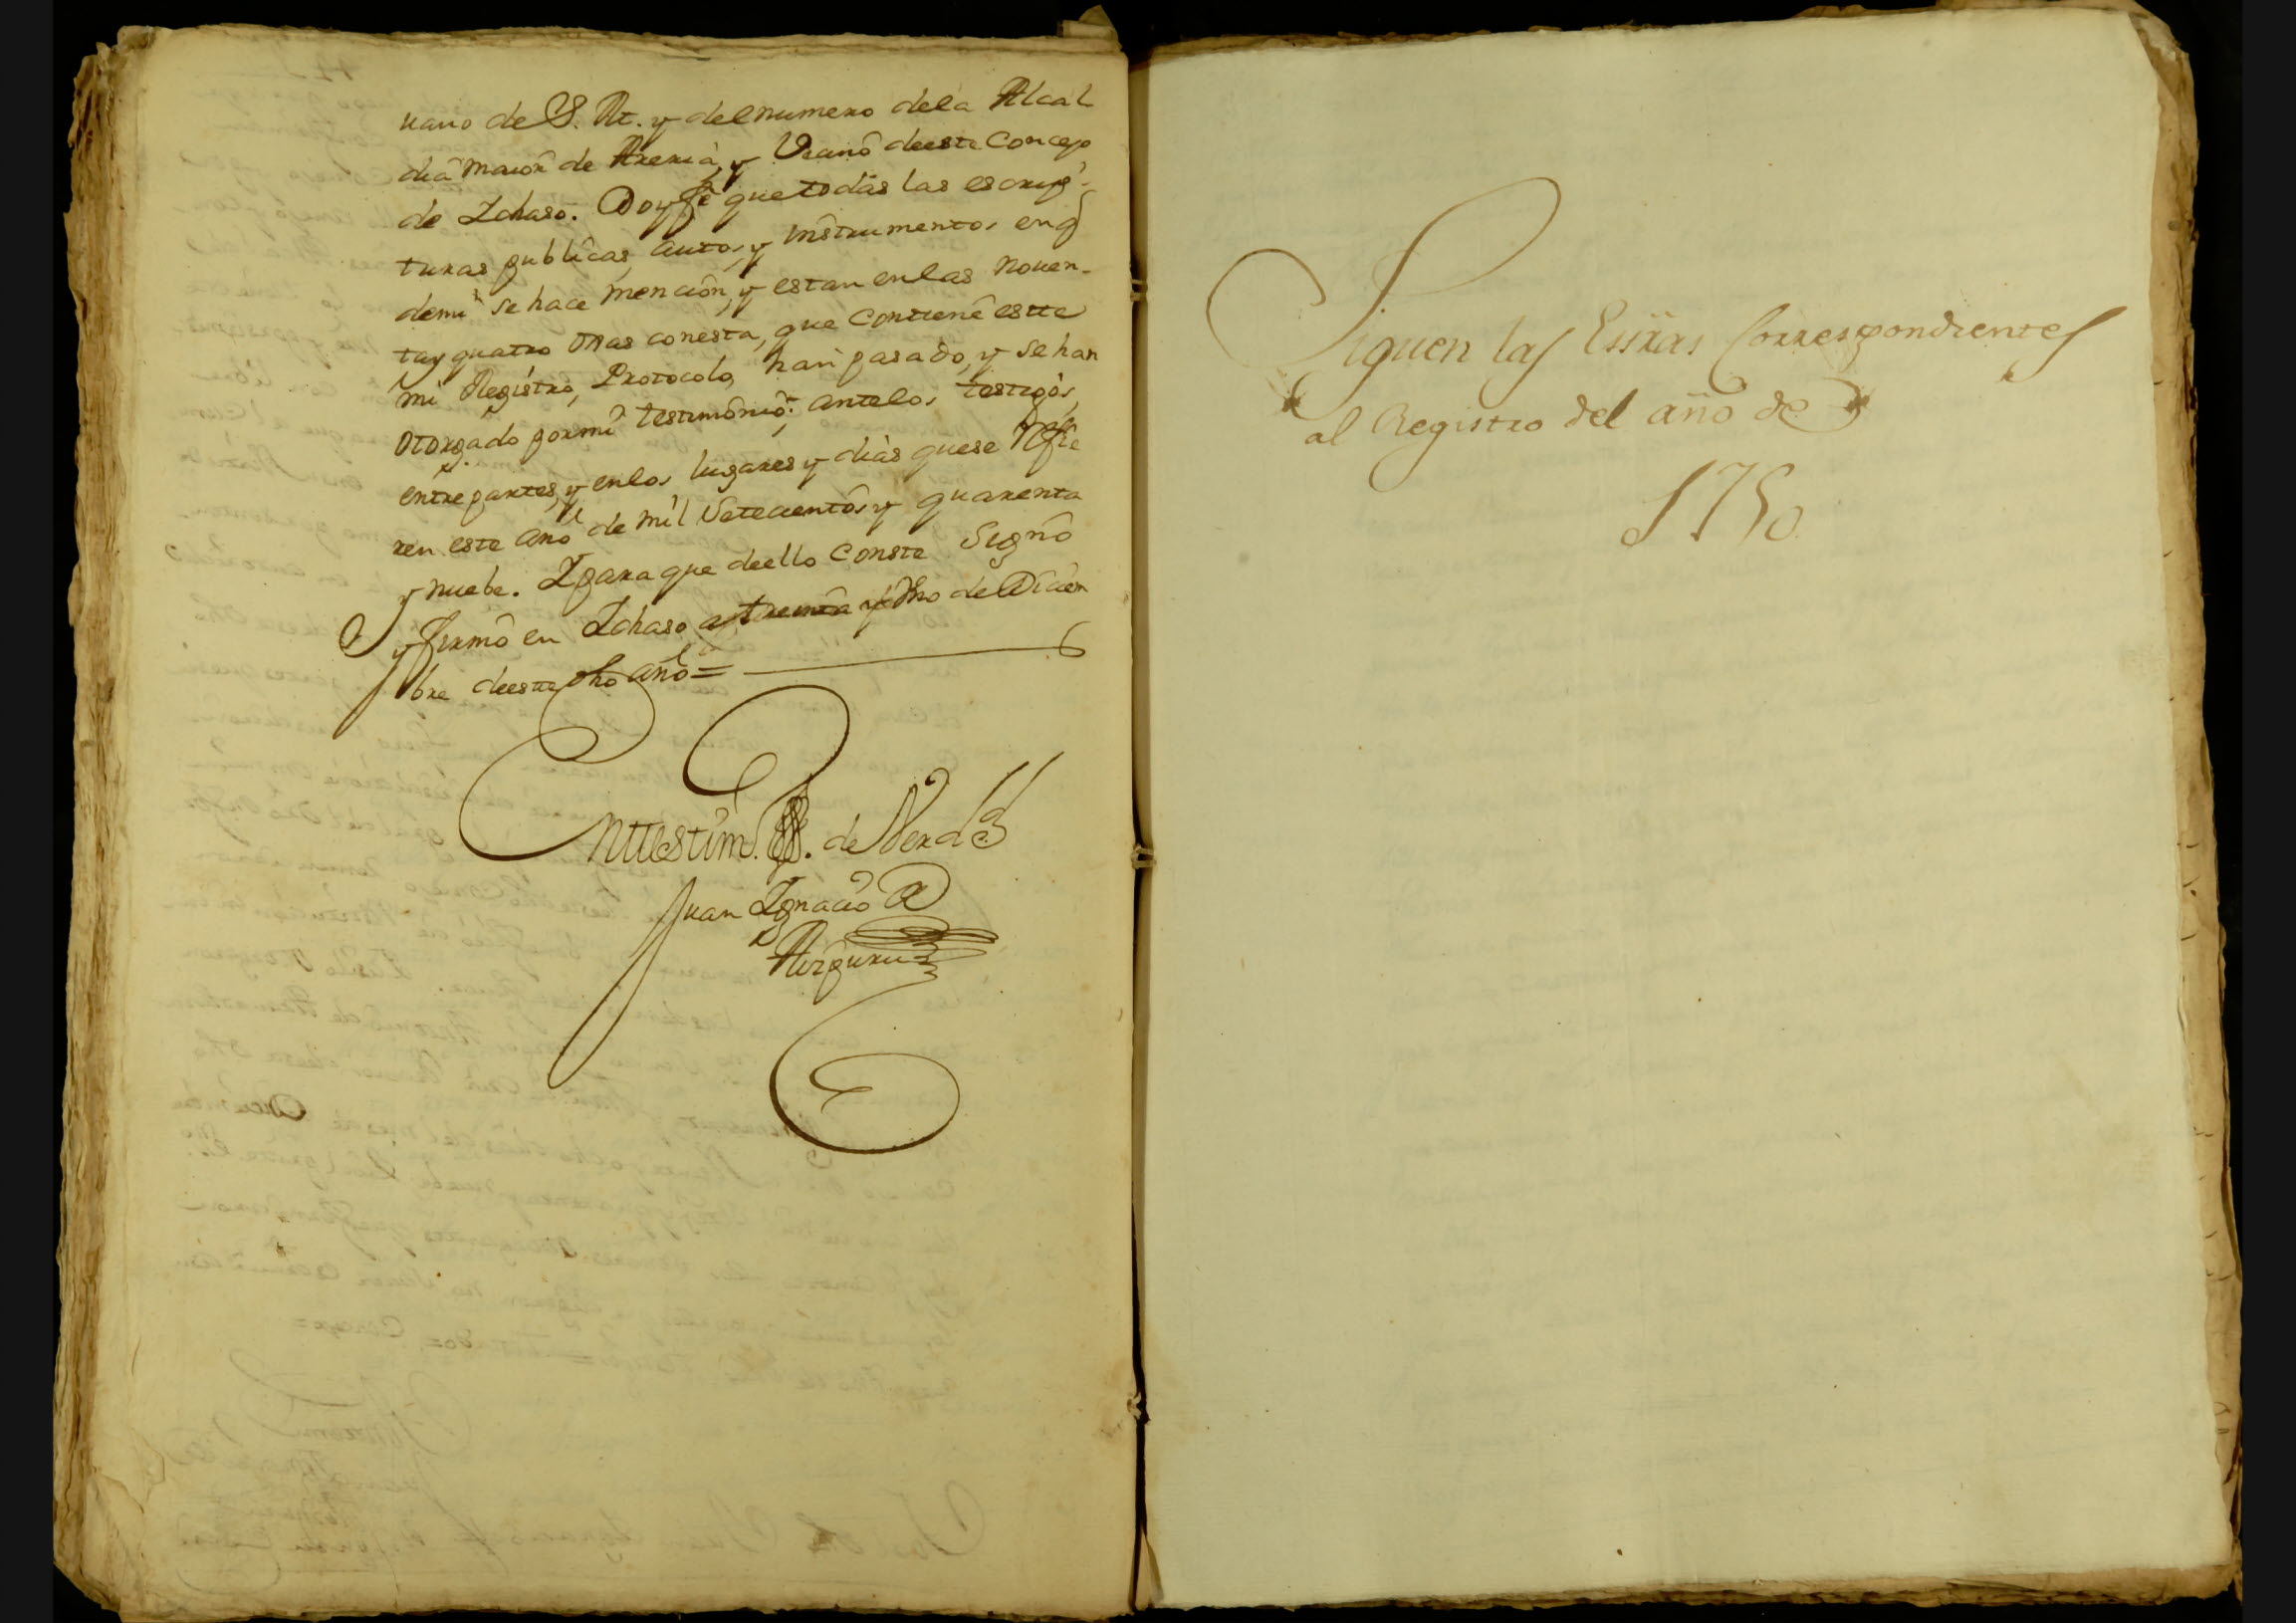 uano de S. M. y del numero dela Alcal
dia maior de Areria, y Vecinô deeste Concejo
de Ichaso. Doy feê que todas las escrip-
turas publicas, autos, y instrumentos en q
demi se hace mencion, y estan enlas noven-
tay quatro ojas conesta, que Contiene estte
mi Registro, Protocolo, han pasado, y se han
otorgado pormi testimonio; antelos testigos,
entre partes, y enlos lugares y dias quese Refie
ren este año de mil Setecientos y quarenta
y nuebe. Y para que deello Conste Signo
y firmo en Ichaso, a treinta y uno de Dicien
bre deeste dho año =
En testim. de Verdad
Juan Ygnacio de
Aizpuru
Siguen las Essras Correspondientes
al Registro del año de
1750